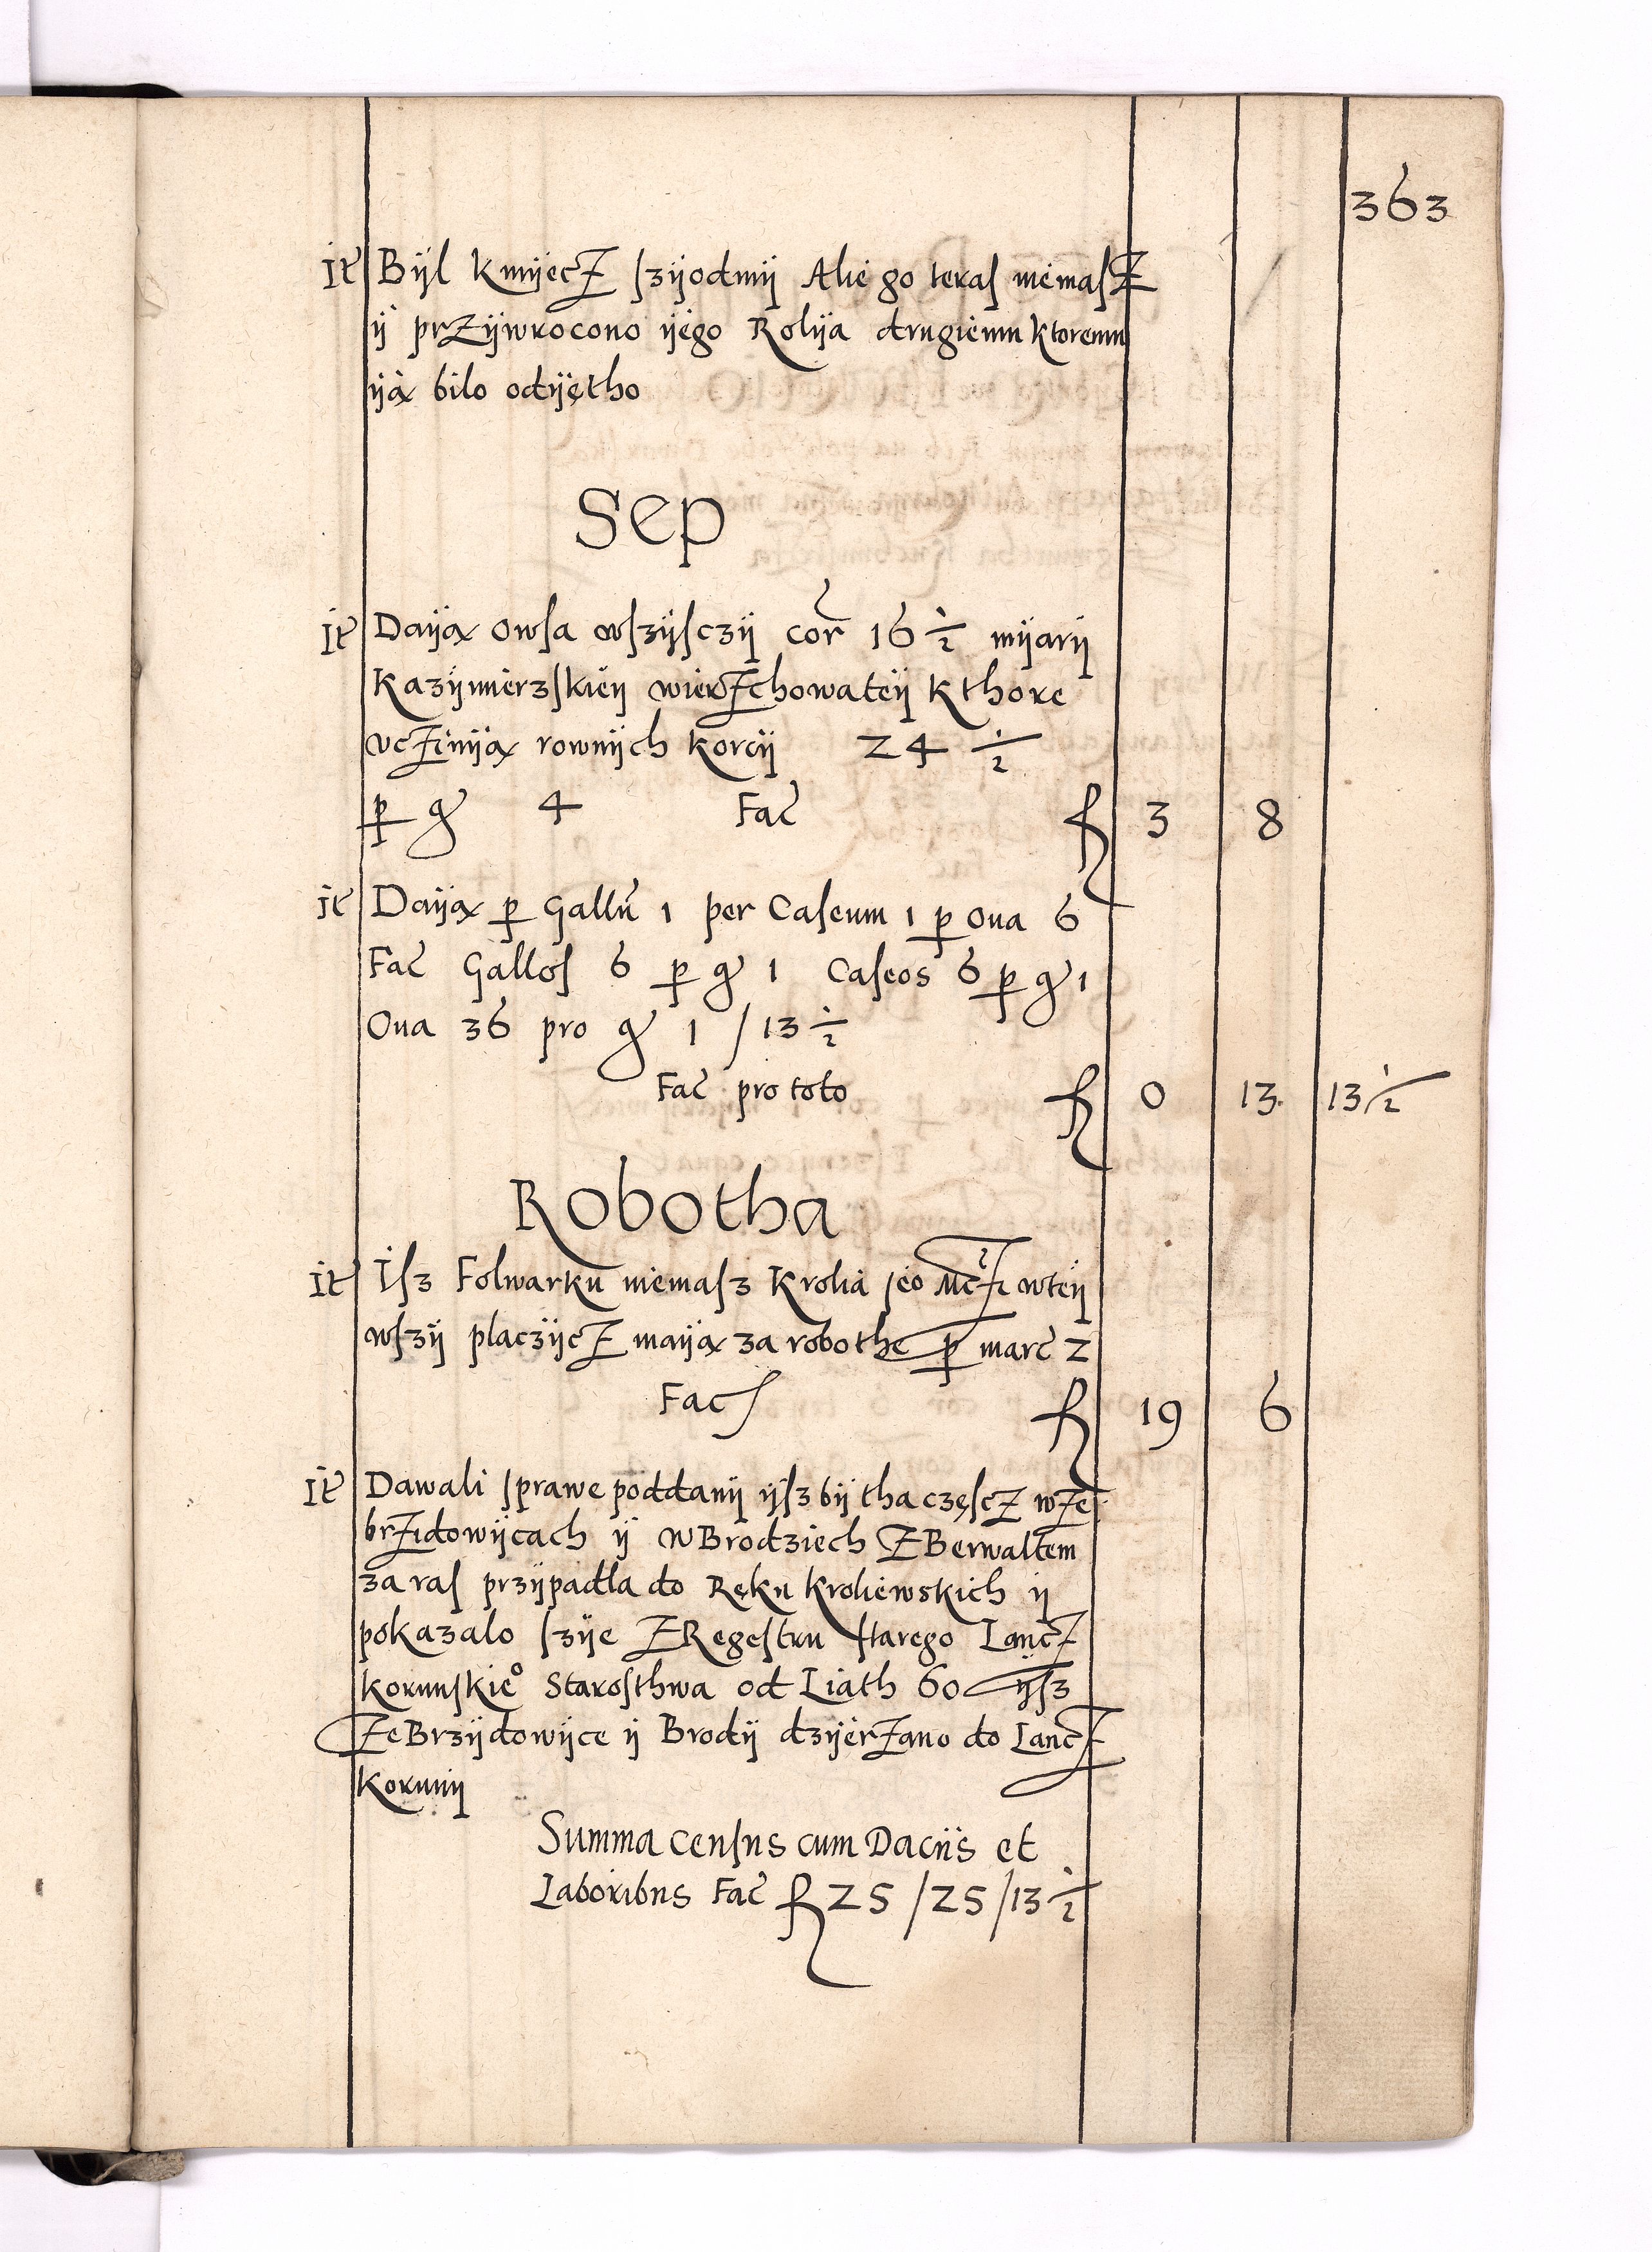 363
It Bÿl kmÿecz ſzÿodmÿ Alie go teras niemaſz
ÿ przÿwrocono ÿego Rolÿa drugiemu ktoremu
ÿą bilo odÿętho
Sep
It Daÿą owſa wſzÿſczÿ cor 16 ½ mÿarÿ
Kazÿmierzſkieÿ wierzchowateÿ kthore
vcżinÿą rownÿch korcÿ 24 ½
p gr 4 Fac f 3 8
It Daÿą p Gallū 1 per Caſeum 1 p oua 6
Fac Gallos 6 p gr 1 Caſeos 6 p gr 1
Oua 36 pro gr 1 / 13 ½
Fac pro toto f 0 13 13 ½
Robotha
It Iſz Folwarku niemaſz Krolia jeo Mczi wteÿ
wſzÿ placzÿcz maÿą za robothe p marc 2
Fac f 19 6
It Dawali ſprawe poddanÿ ÿſz bÿ tha częſcz wZe
brzidowÿcach ÿ w Brodziech z Berwaltem
za ras przÿpadla do Ręku kroliewskich ÿ
pokazalo ſzÿe z Regeſtru ſtarego Lancz
korunſkieo Staroſthwa od Liath 60 ÿſz
Zebrzÿdowÿce ÿ Brodÿ dzÿerzano do Lancz
korunÿ
Summa cenſus cum Daciis et
Laboribus Fac f 25 / 25 / 13 ½